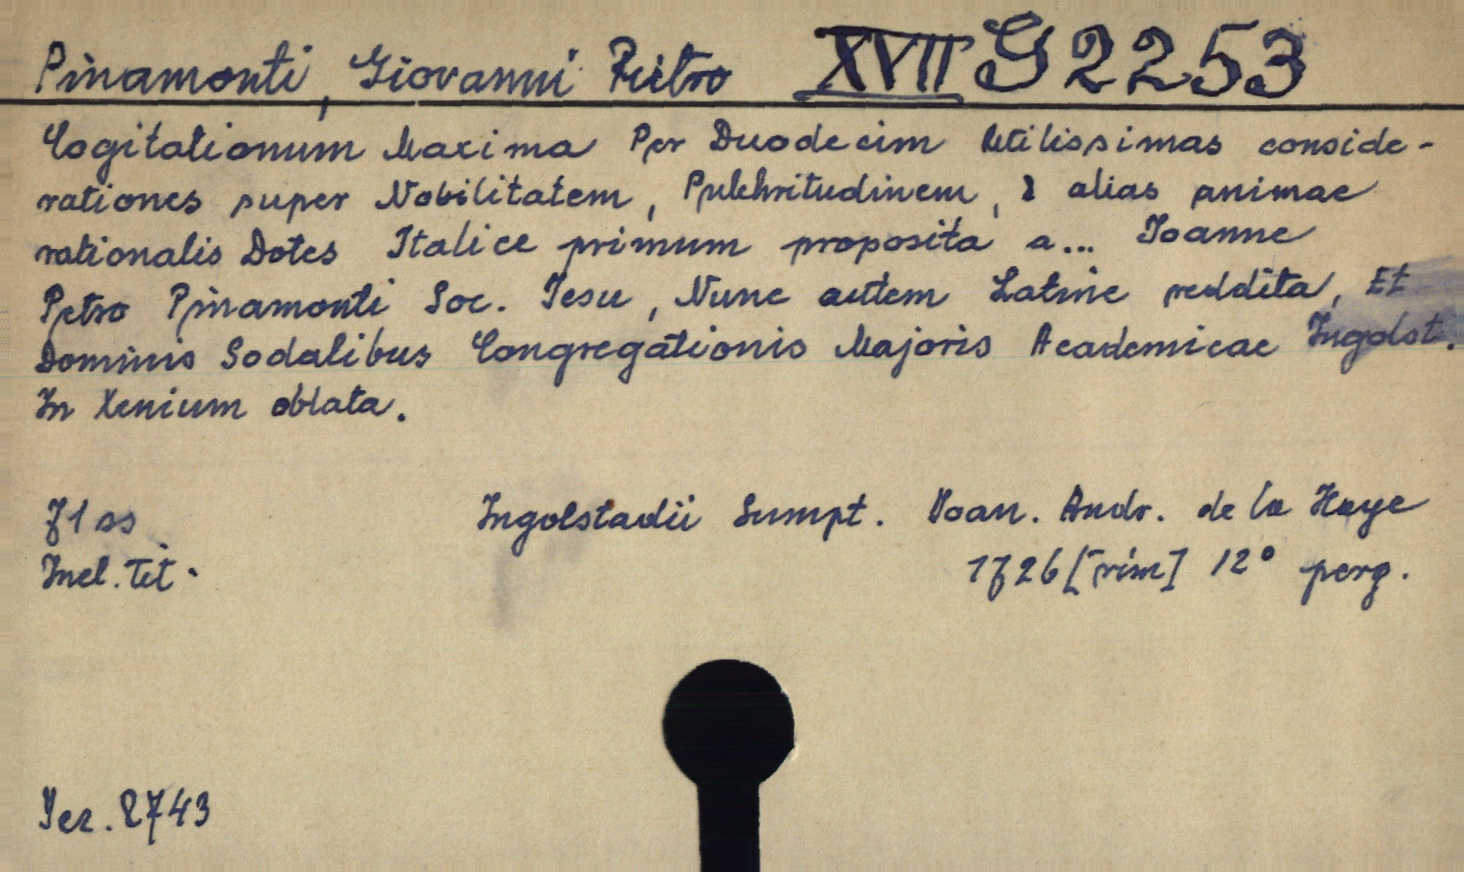 Pinamonti, Giovanni Pietro XVII G 2253
Cogitationum Maxima Per Duodecim Utilissimas conside-
rationes super Nobilitatem, Pulchritudinem, & alias animae
rationalis Dotes Italice primum proposita a... Ioanne
Petro Pinamonti Soc. Iesu, Nunc autem Latine reddita, Et
Dominis Sodalibus Congregationis Majoris Academicae Ingolst.
In Xenium oblata.
Ingolstadii Sumpt. Joan. Andr. de la Haye
Incl. Tit.
1726 [rím] 12° perg.
Jez. 2743